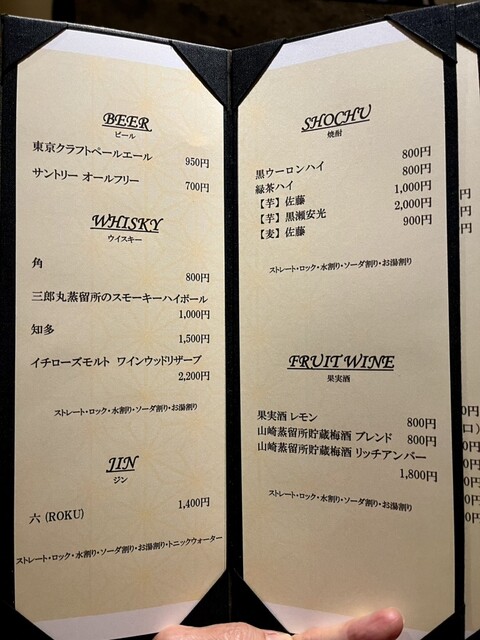 BEER
ビール
東京クラフトペールエール 950円
サントリー オールフリー 700円
WHISKY
ウイスキー
角
800円
三郎丸蒸留所のスモーキーハイボール
1,000円
知多
1,500円
イチローズモルト ワインウッドリザーブ
2,200円
ストレート・ロック・水割り・ソーダ割り・お湯割り
JIN
ジン
六 (ROKU) 1,400円
ストレート・ロック・水割り・ソーダ割り・お湯割り・トニックウォーター
SHOCHU
焼酎
黒ウーロンハイ 800円
緑茶ハイ 800円
【芋】佐藤 1,000円
【芋】黒瀬安光 2,000円
【麦】佐藤 900円
ストレート・ロック・水割り・ソーダ割り・お湯割り
FRUIT WINE
果実酒
果実酒 レモン 800円
山崎蒸留所貯蔵梅酒 ブレンド 800円
山崎蒸留所貯蔵梅酒 リッチアンバー
1,800円
ストレート・ロック・水割り・ソーダ割り・お湯割り